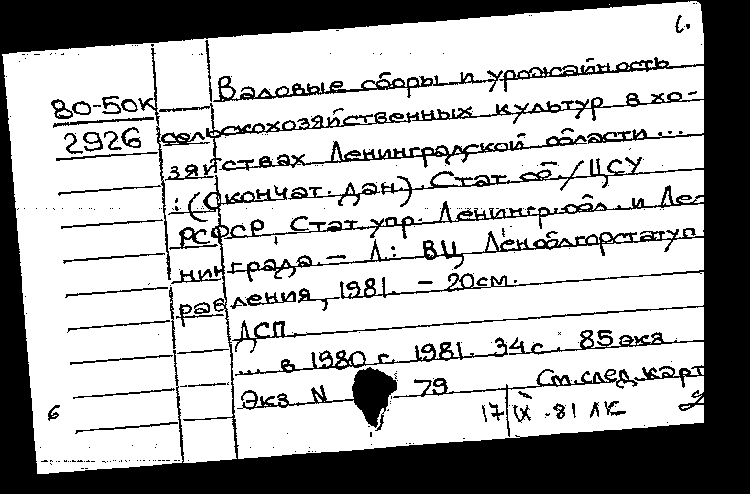 6.
80-50К
2926
Валовые сборы и урожайность
сельскохозяйственных культур в хо-
зяйствах Ленинградской области ...
: (Окончат. дан.). Стат. сб. / ЦСУ
РСФСР, Стат. упр. Ленингр. обл. и Ле-
нинграда. – Л.: ВЦ Леноблгорстатуп-
равления, 1981. – 20см.
ДСП.
... в 1980 г. 1981. 34с. 85 экз.
Экз. N 79 См. след. карт
6
17 IX .81 ЛК